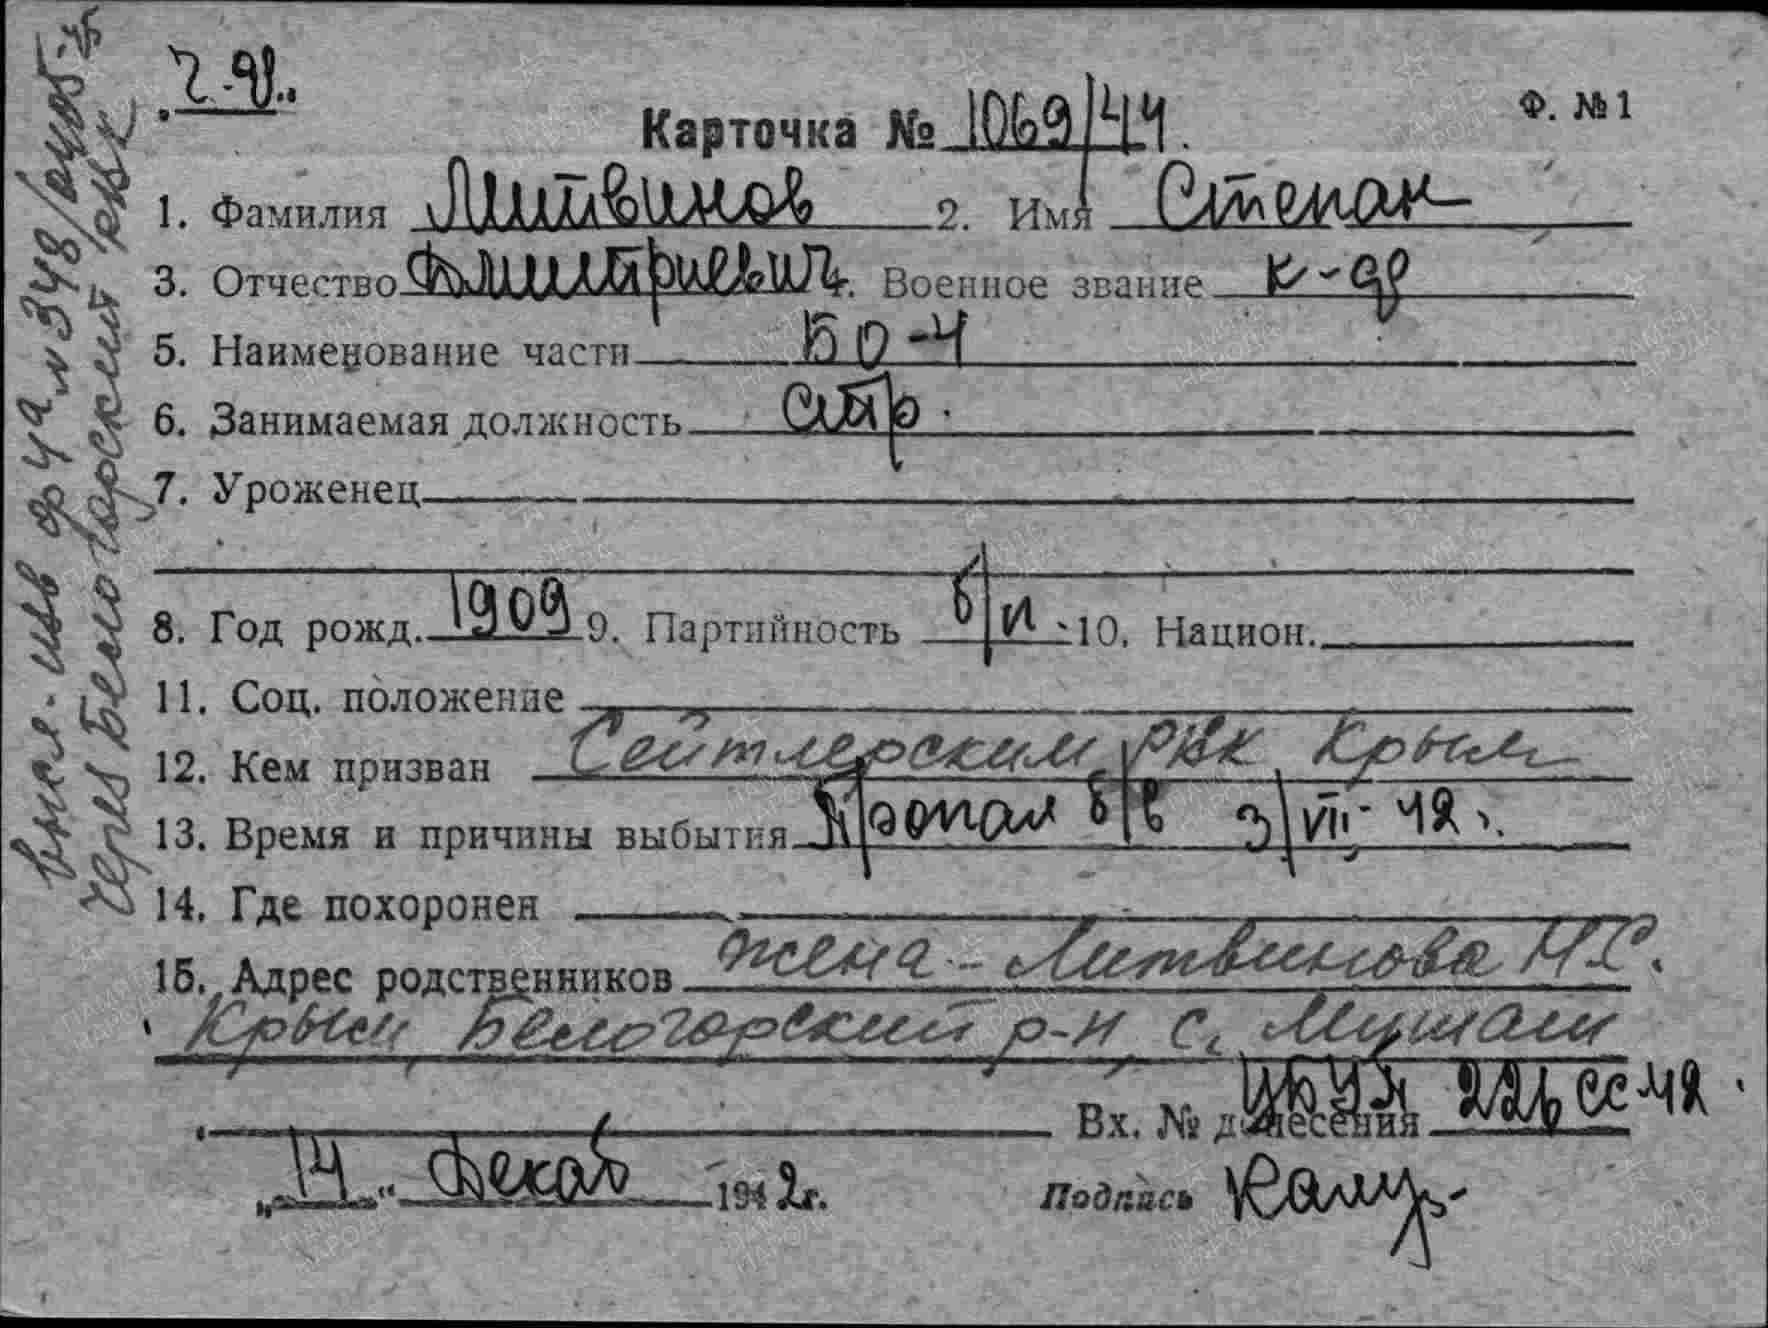 Ч-Ф.
Ф. №1
Карточка № 1069/44.
1. Фамилия Литвинов 2. Имя Степан
3. Отчество Дмитриевич 4. Военное звание к-ф
5. Наименование части БО-4
6. Занимаемая должность стр.
7. Уроженец
8. Год рожд. 1909 9. Партийность б/п 10. Национ.
11. Соц. положение
12. Кем призван Сейтлерским РВК Крым
13. Время и причины выбытия Пропал б/в 3/VII-42 г.
14. Где похоронен
15. Адрес родственников жена - Литвинова Н.С.
Крым, Белогорский р-н, с. Мушаш
Вх. № донесения ЦБУП 226 сс 42
„14“ Декаб 1942 г. Подпись
ф 4а № 348
через Белогорский РВК